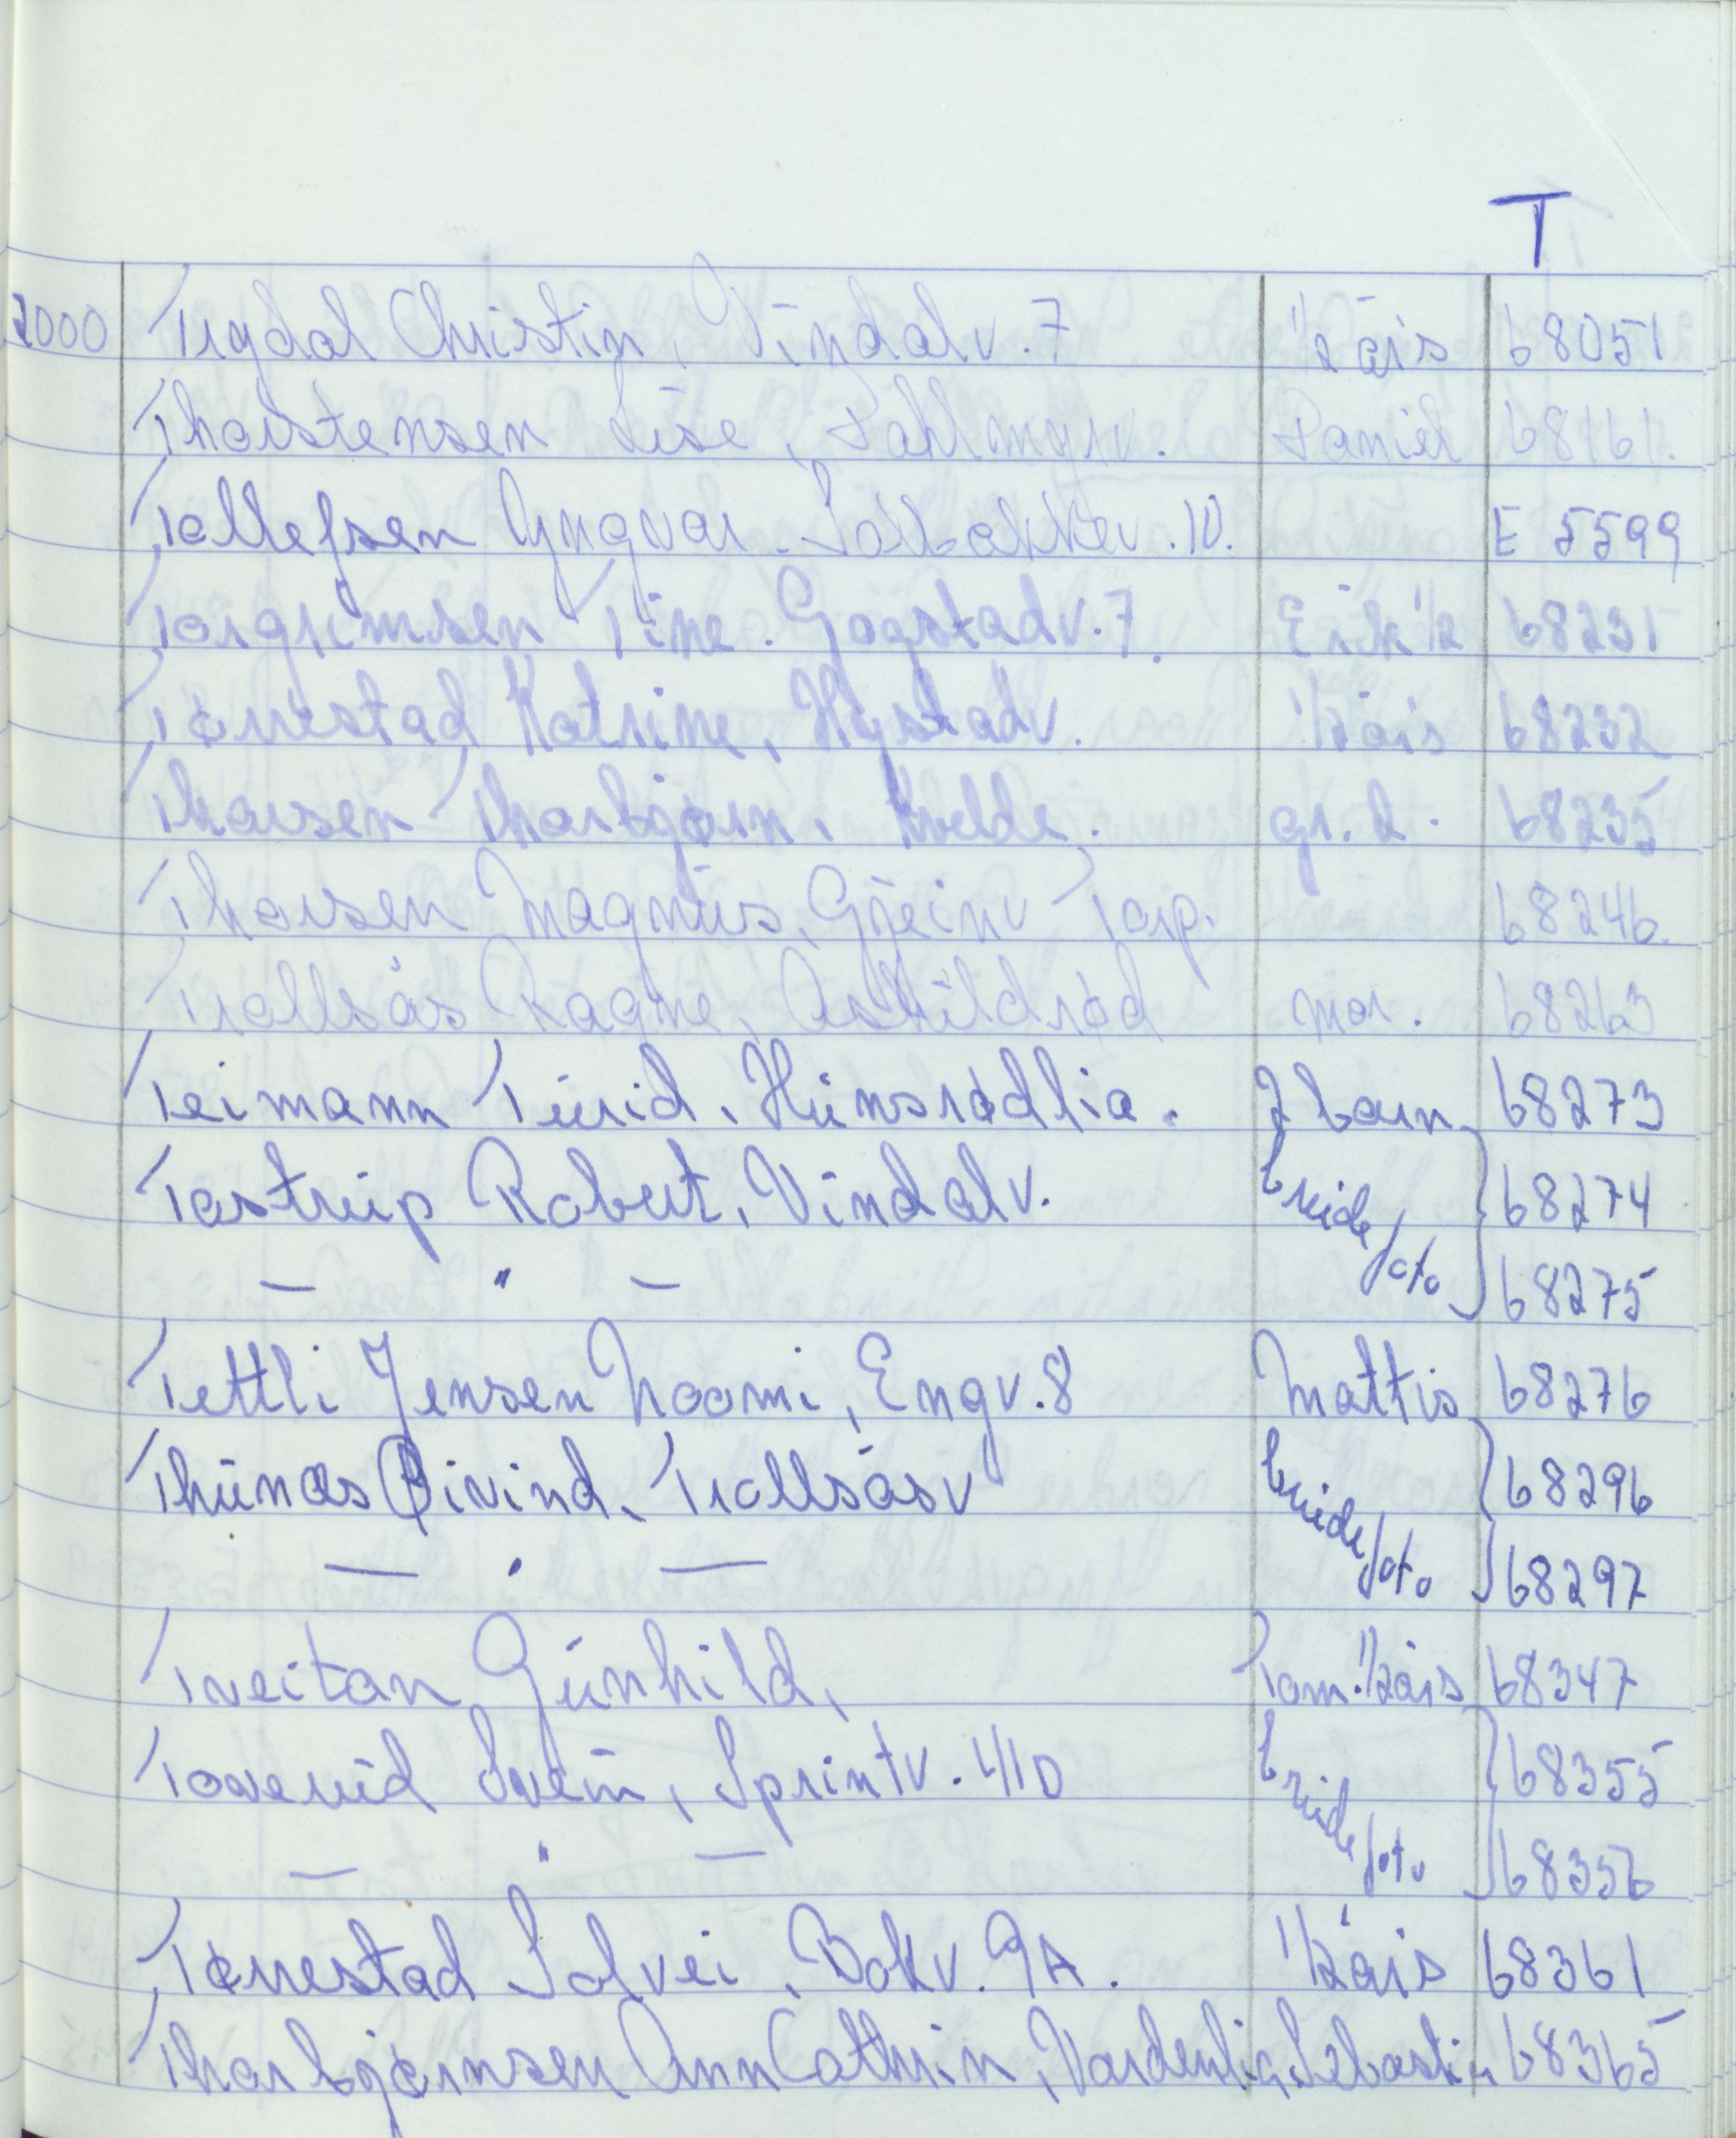 T
2000 Trydal Christin, Vindalv. 7 1/2 års 68051
Thorstensen Lise, Dahlmyrv. Daniel 68161.
Tollefsen Yngvar. Solbakkev. 10. E 5599
Torgrimsen Tine. Gogstadv. 7. Erik 1/2 68231
Tørrestad Katrine, Hystadv. 1/2 års 68232
Thorsen Thorbjørn. Kvelde. gr. 2. 68235
Thorsen Magnus, Gjeinv Torp. 68246.
Trollsås Ragne, Askildrød mor. 68263
Teimann Turid. Hünsrødlia. 2 barn 68273
Tostrup Robert. Vindalv. brude 68274
— " — foto 68275
Tettli Jensen Noomi, Engv. 8 Mattis 68276
Thunæs Øivind. Trollsåsv brude 68296
— " — foto 68297
Tveitan Gunhild, Tom. 1/2 års 68347
Toverud Svein, Sprintv. 41D brude 68355
— " — foto 68356
Tørrestad Solvei, Bokv. 9A. 1/2 års 68361
Thorbjørnsen Ann Cathrin, Vardenlia, Sebastian 68365